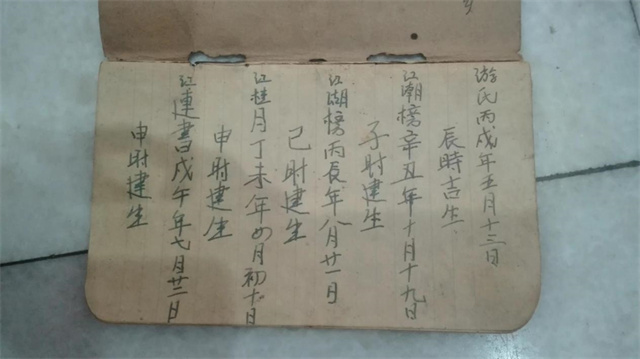 游氏丙戌年五月十三日
辰時吉生
江潮榜辛丑年十月十九日
子时建生
江湖榜丙辰年八月廿一日
己时建生
江桂月丁未年四月初十日
申时建生
江連書戌午年七月廿二日
申时建生